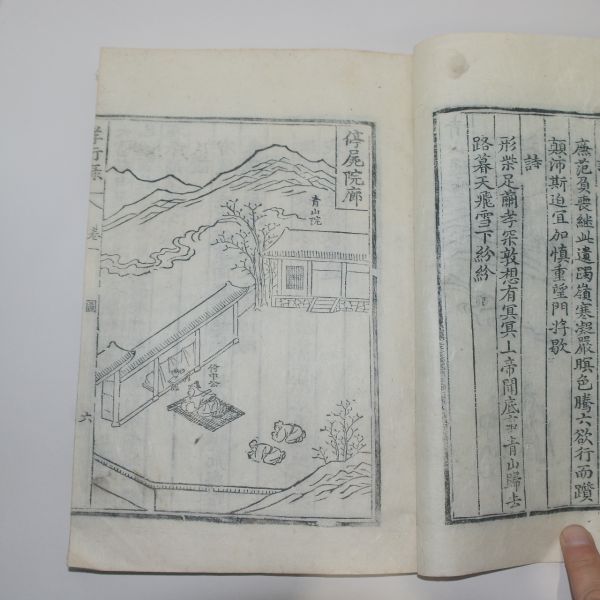 廉范負喪繼此遺躅嶺寒凝嚴暝色騰六欲行而躓
顛沛斯迫宜加愼重望門將歇
詩
形柴足繭孝深敦想有冥冥上帝聞底
青山歸去
路暮天飛雪下紛紛
停屍院廊
青山院
侍中公
孝行錄
卷一
圖
六